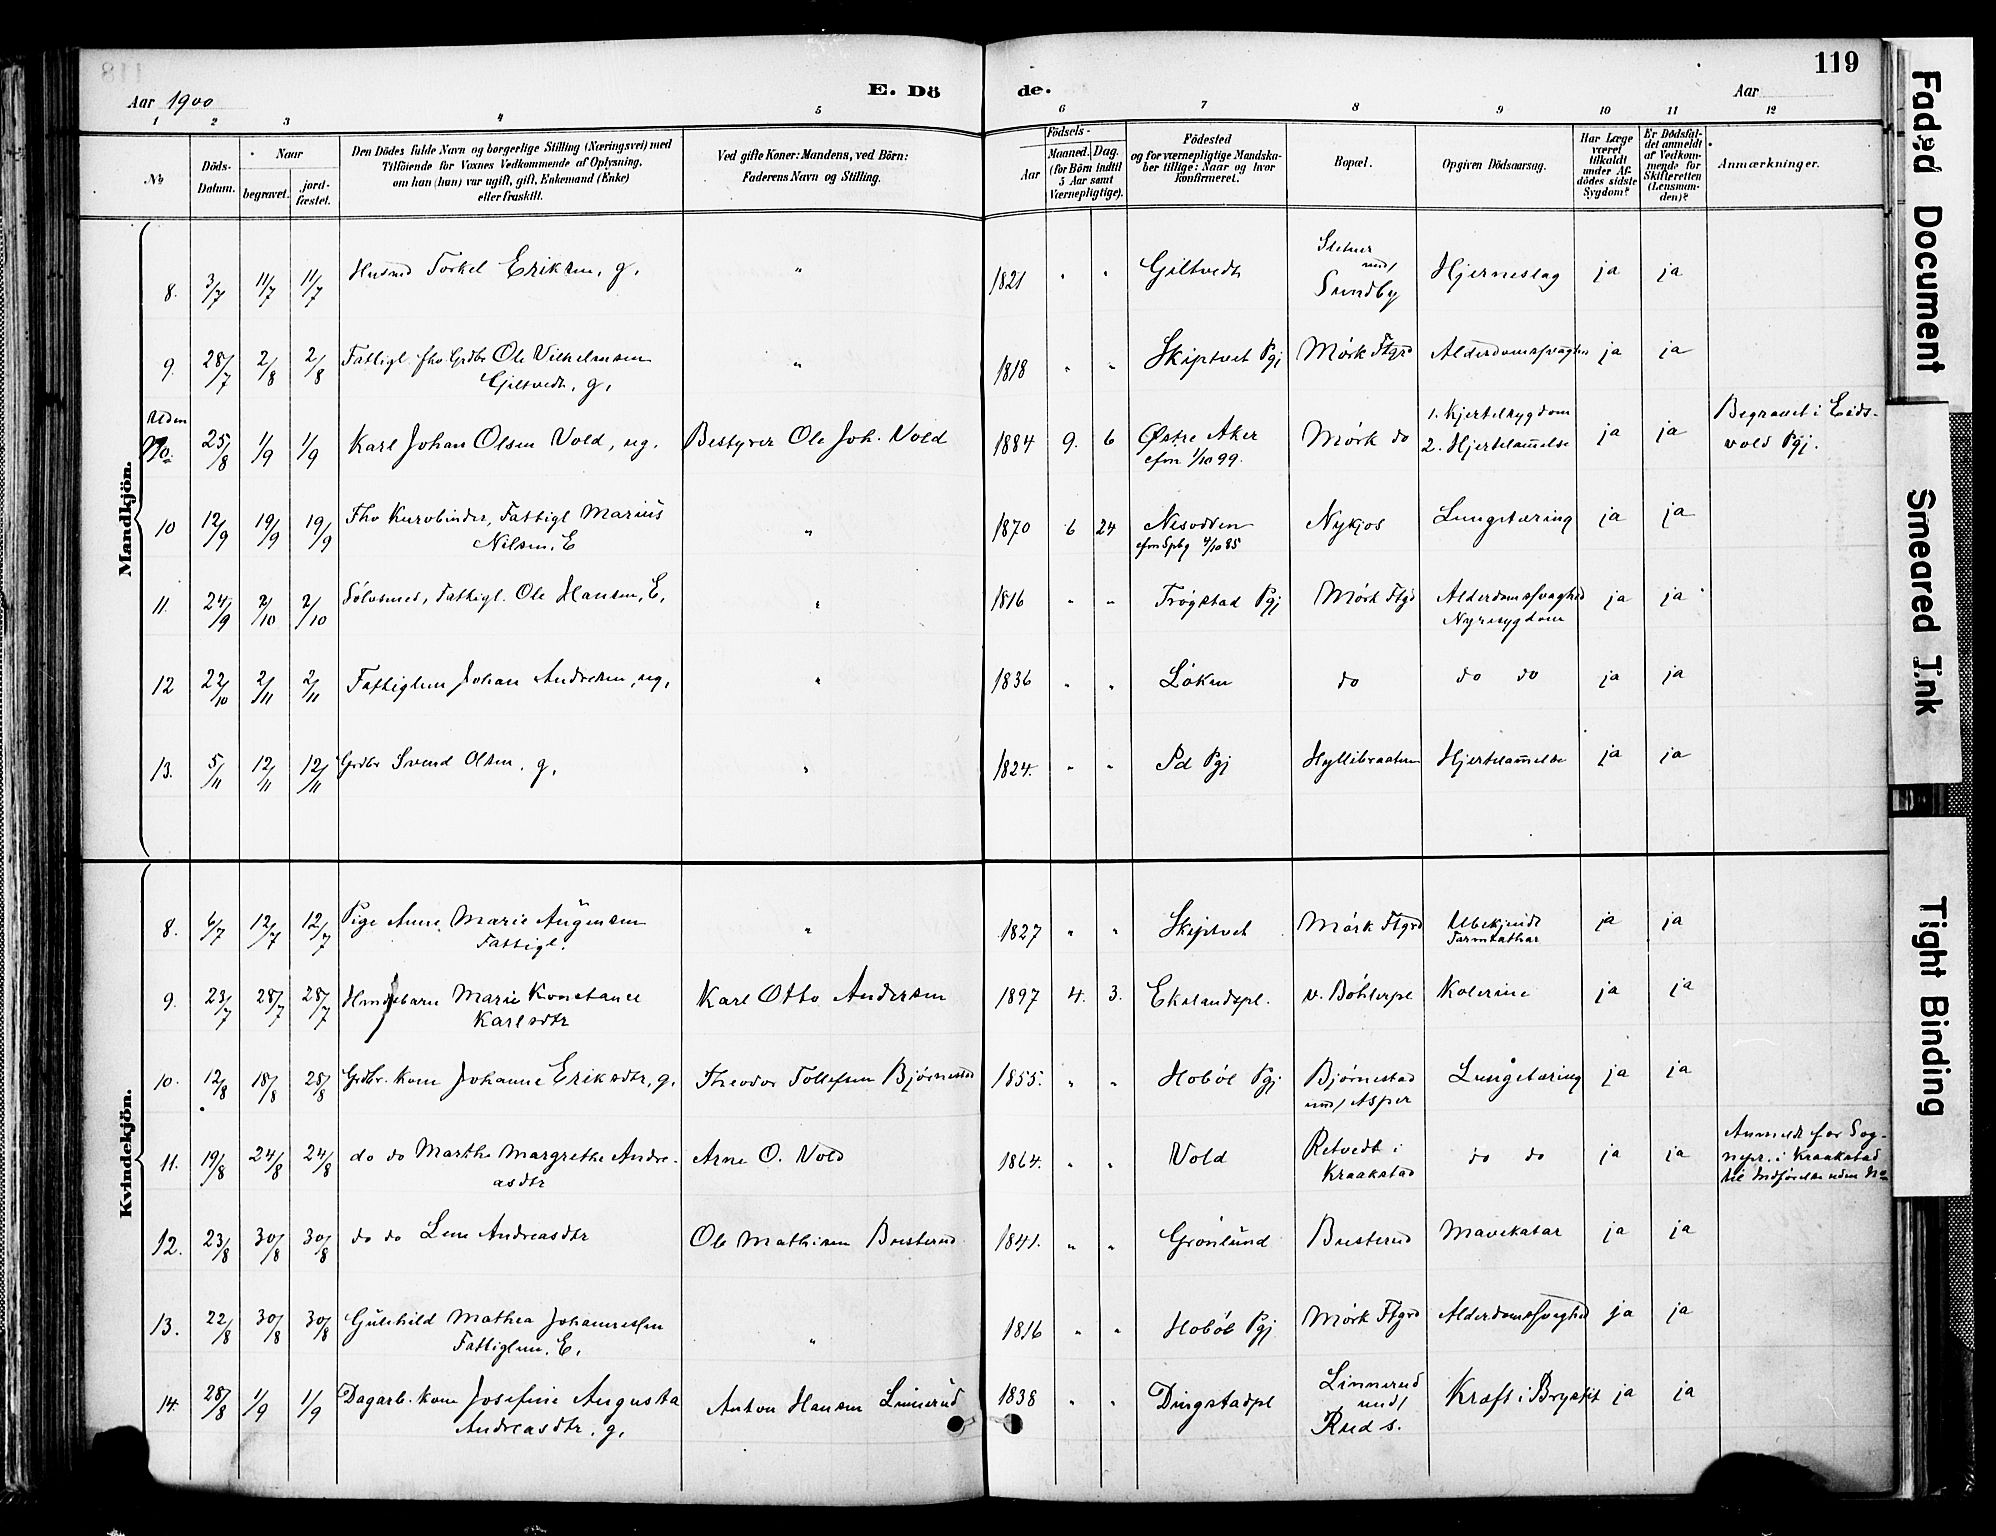 119
Aar 1900
E. Dö
de.
Aar
1 2 3 4 5 6 7 8 9 10 11 12
No
Döds-
Datum.
Naar
begravet.
jord-
fæstet.
Den Dödes fulde Navn og borgerlige Stilling (Næringsvei) med
Tilföiende for Voxnes Vedkommende af Oplysning,
om han (hun) var ugift, gift, Enkemand (Enke)
eller fraskilt.
Ved gifte Koner: Mandens, ved Börn:
Faderens Navn og Stilling.
Födsels-
Aar
Maaned. Dag.
(for Börn indtil
5 Aar samt
Værnepligtige).
Födested
og for værnepligtige Mandska-
ber tillige: Naar og hvor
konfirmeret.
Bopæl.
Opgiven Dödsaarsag.
Har Læge
været
tilkaldt
under Af-
dödes sidste
Sygdom?
Er Dödsfal-
det anmeldt
af Vedkom-
mende for
Skifteretten
(Lensman-
den)?
Anmærkninger.
Mandkjön.
8. 3/7 11/7 11/7 Husmd Torkel Eriksen, g, " 1821 " " Giltvedt
Sletner
und/
Sundby
Hjerneslag ja ja
9. 28/7 2/8 2/8 Fattigl. fhv. Grdbr Ole Vilhelmsen
Giltvedt, g,
" 1818 " " Skiptvet Pgj Mørk Ftgrd Alderdomssvaghed ja ja
Uden
No. 25/8 1/9 1/9 Karl Johan Olsen Vold, ug, Bestyrer Ole Joh. Vold 1884 9. 6 Østre Aker
cfm 1/10 99.
Mørk do
1. Kjertelsygdom
2. Hjertelammelse
ja ja
Begravet i Eids-
vold Pgj.
10 12/9 19/9 19/9 Fhv Kurvbinder, Fattigl Marius
Nilsen, E
" 1870 6 24 Nesodden
cfm Spbg 4/10 85
Nykjos Lungetæring ja ja
11. 24/9 2/10 2/10 Fattigl. Ole Hansen, E, " 1816 " " Trøgstad Pgj Mørk Ftgd Alderdomssvaghed
Nyresygdom
ja ja
12 22/10 2/11 2/11 Fattiglem Johan Andresen, ug, " 1836 " " Løken do do do ja ja
13. 5/11 12/11 12/11 Grdbr Svend Olsen, g, " 1824. " " Sd Pgj Hyllibraaten Hjertelammelse ja ja
Kvindekjön.
8. 6/7 12/7 12/7 Pige Anne Marie Augensen
Fattigl.
" 1827 " " Skiptvet Mørk Ftgrd Ubekjendt
Tarmkathar
ja ja
9. 23/7 28/7 28/7 Marie Konstance
Karlsdtr
Karl Otto Andersen 1897 4. 3. Ekelandspl. v. Bøhlerpl Kolerine ja ja
10. 12/8 18/8 28/8 Grdbr. kone Johanne Eriksdtr, g, Theodor Tollefsen Bjørnestad 1855. " " Hobøl Pgj Bjørnestad
und/ Asper
Lungetæring ja ja
11. 19/8 24/8 24/8 do do Marthe Margrethe Andre-
asdtr
Arne O. Vold 1864. " " Vold Retvedt i
Kraakstad
do do ja ja
Anmeldt for Sog-
nepr. i Kraakstad
til Indførelse uden No
12. 23/8 30/8 30/8 do do Lene Andreasdtr Ole Mathisen Busterud 1841. " " Grønlund Busterud Mavekatar ja ja
13. 22/8 30/8 30/8 Gulehild Mathea Johannessen
Fattiglem, E,
" 1816 " " Hobøl Pgj Mørk Ftgrd Alderdomssvaghed ja ja
14. 28/8 1/9 1/9 Dagarb. kone Josefine Augusta
Andreasdtr, g,
Anton Hansen Linnerud 1838 " " Dingstadpl
Linnerud
und/
Rud s.
Kræft i Brystet ja ja
Faded Document
Smeared Ink
Tight Binding